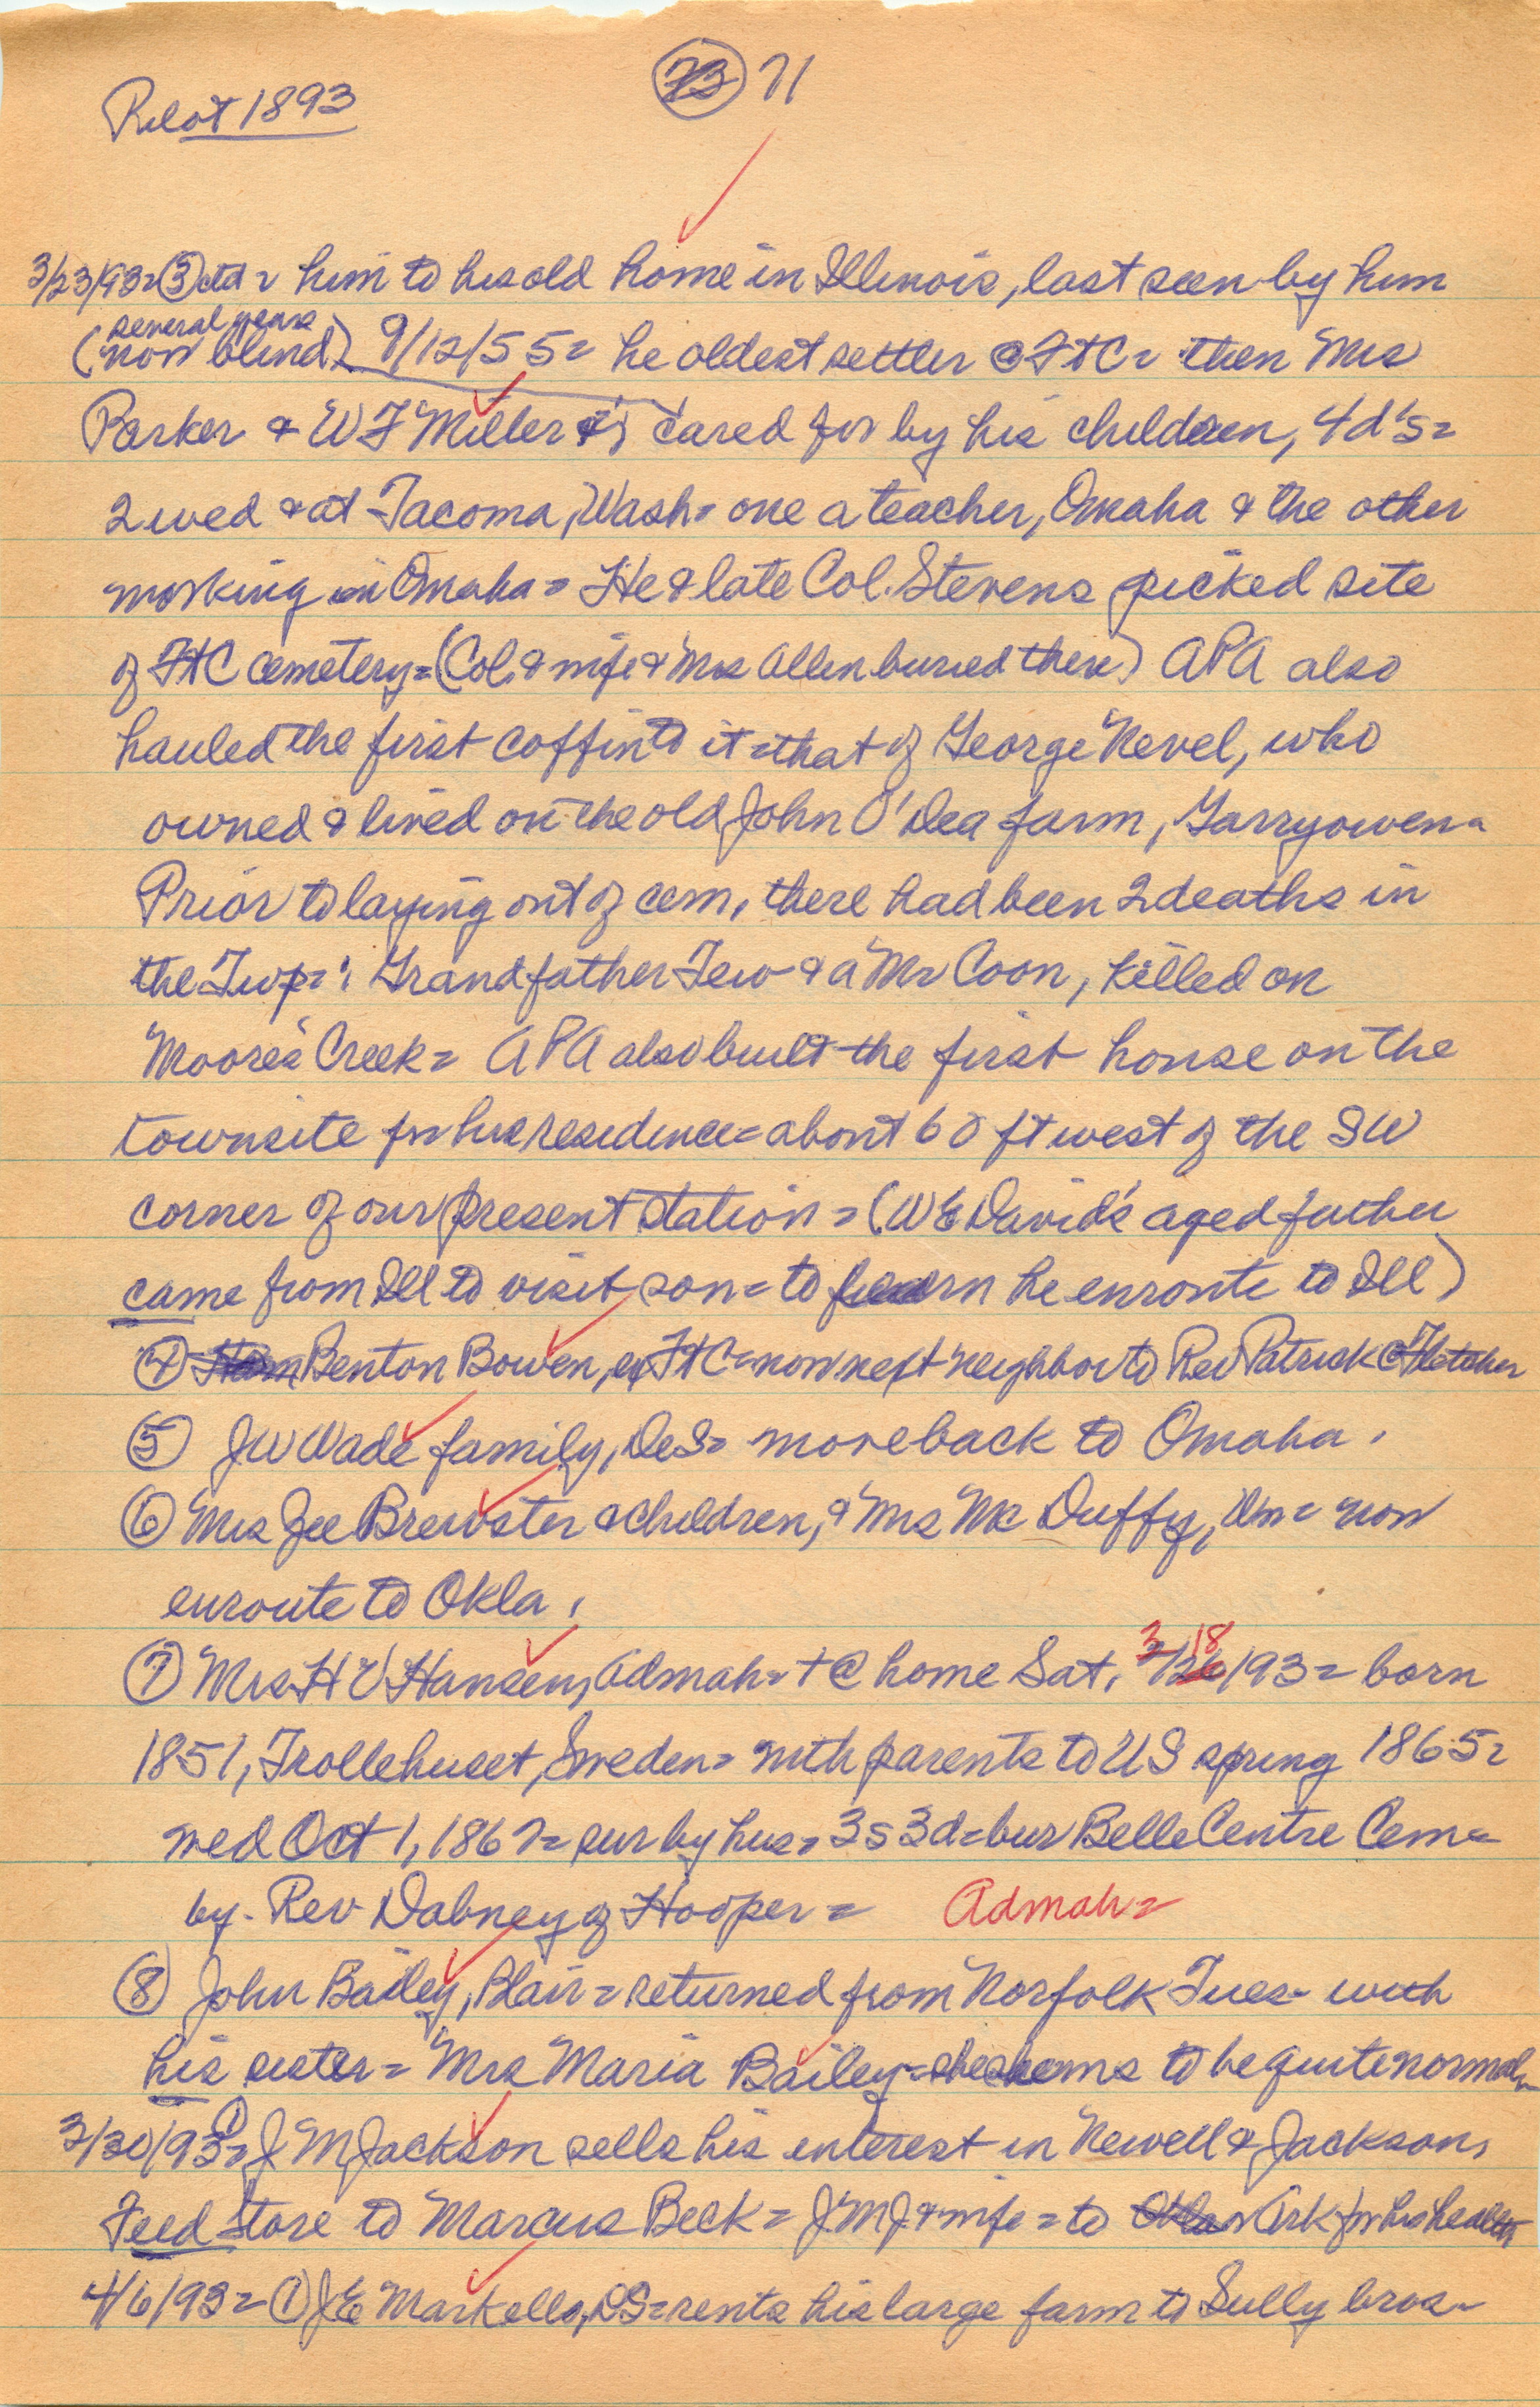 73 71
Pilot 1893
3/23/93 = ③ ctd = him to his old home in Illinois, last seen by him
several years
(now blind) 9/12/55 = he oldest settler @ FtC = then Mrs
Parker & W F Miller &'s cared for by his children, 4 d's =
2 wed & at Tacoma, Wash = one a teacher, Omaha & the other
working in Omaha = He & late Col. Stevens picked site
of FtC cemetery = (Col. & wife & Mrs Allen buried there) APA also
hauled the first coffin to it = that of George Nevel, who
owned & lived on the old John O'Dea farm, Garryowen =
Prior to laying out of cem, there had been 2 deaths in
the Twp = : Grandfather Tew & a Mr Coon, killed on
Moores Creek = APA also built the first house on the
townsite for his residence = about 60 ft west of the SW
corner of our present station = (W E David's aged father
came from Ill to visit son = to learn he enroute to Ill)
④ Benton Bowen, ex FtC = now next neighbor to Rev Patrick @ Fletcher
⑤ J W Wade family, DeS = move back to Omaha.
⑥ Mrs Joe Brewster & children, & Mrs Mc Duffy, = now
enroute to Okla.
⑦ Mrs H V Hansen, Admah = + @ home Sat. 3/18/93 = born
1851, Trollehuset, Sweden = with parents to US spring 1865 =
wed Oct 1, 1867 = sur by hus = 3s 3d = bur Belle Centre Cem =
by Rev Dabney of Hooper = Admah =
⑧ John Bailey, Blair = returned from Norfolk Tues - with
his sister = Mrs Maria Bailey = she seems to be quite normal =
3/30/93 = ① J M Jackson sells his interest in Newell & Jackson,
Feed Store to Marcus Beck = J M J & wife = to Ark for his health
4/6/93 = ① J E Markell, DS = rents his large farm to Sully bros =